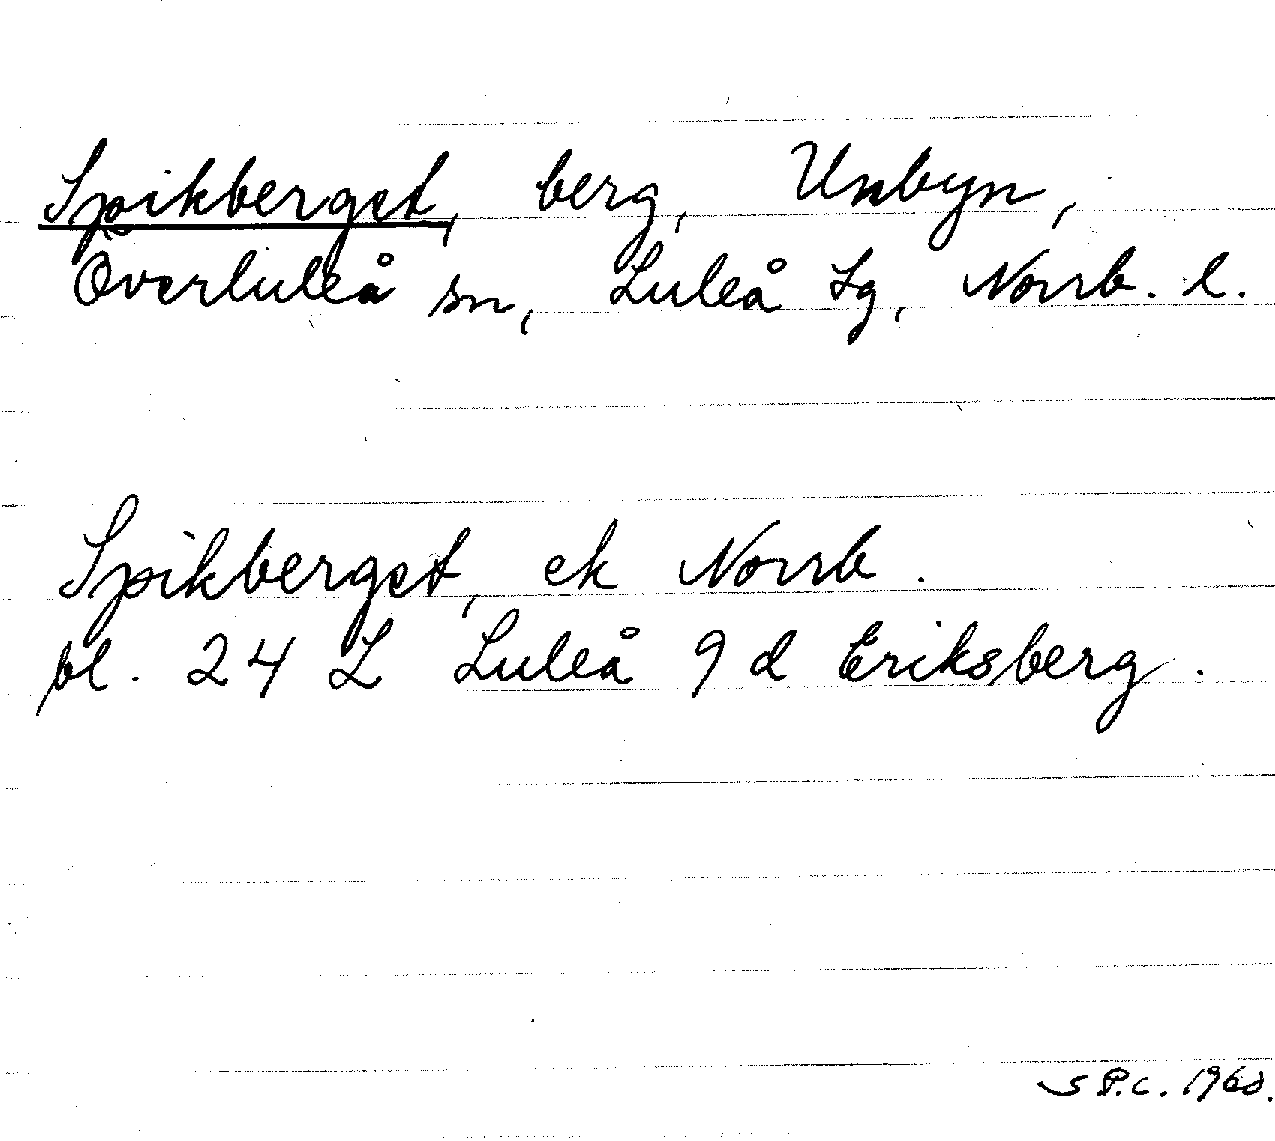 Spikberget, berg, Unbyn,
Överluleå sn, Luleå tg, Norrb. l.
Spikberget, ek Norrb.
bl. 24 L Luleå 9 d Eriksberg.
S P.C. 1968.